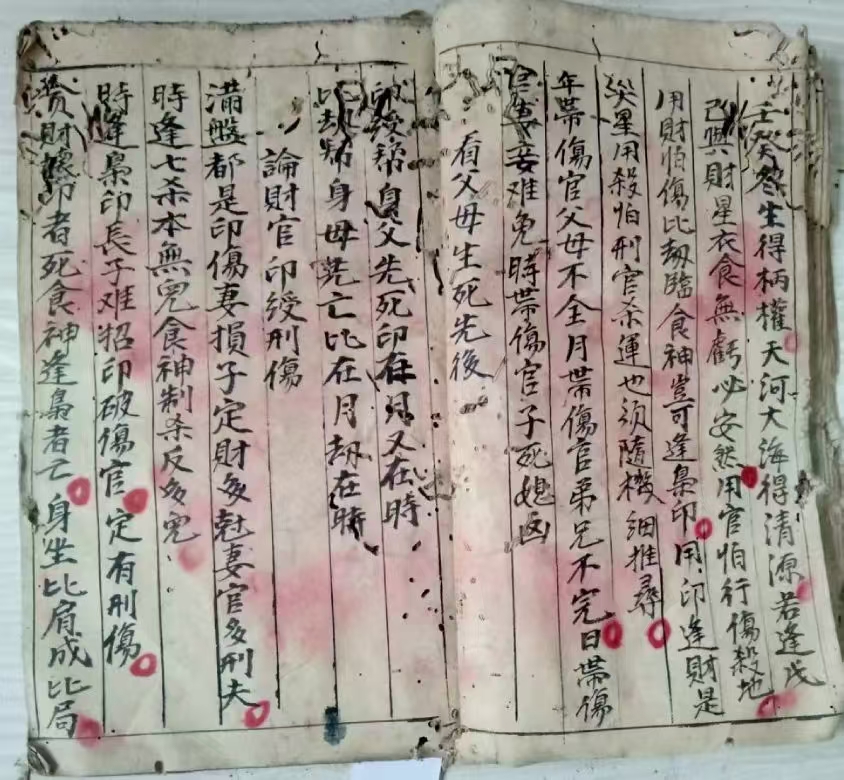 壬癸冬生得柄權天河大海得清源若逢戊
己興財星衣食無虧必安然用官怕行傷殺地
用財怕傷比劫臨食神豈可逢梟印用印逢財是
災星用殺怕刑官杀運也须隨機細推尋
年帶傷官父母不全月帶傷官弟兄不完日帶傷
官妻妾难免時帶傷官子死媳凶
看父母生死先後
印綬幫身父先死印在月又在時
比劫幫身母先亡比在月劫在時
論財官印綬刑傷
滿盤都是印傷妻損子定財多尅妻官多刑夫
時逢七杀本無兒食神制杀反多兒
時逢梟印長子难招印破傷官定有刑傷
貪財壞印者死食神逢梟者亡身坐比肩成比局